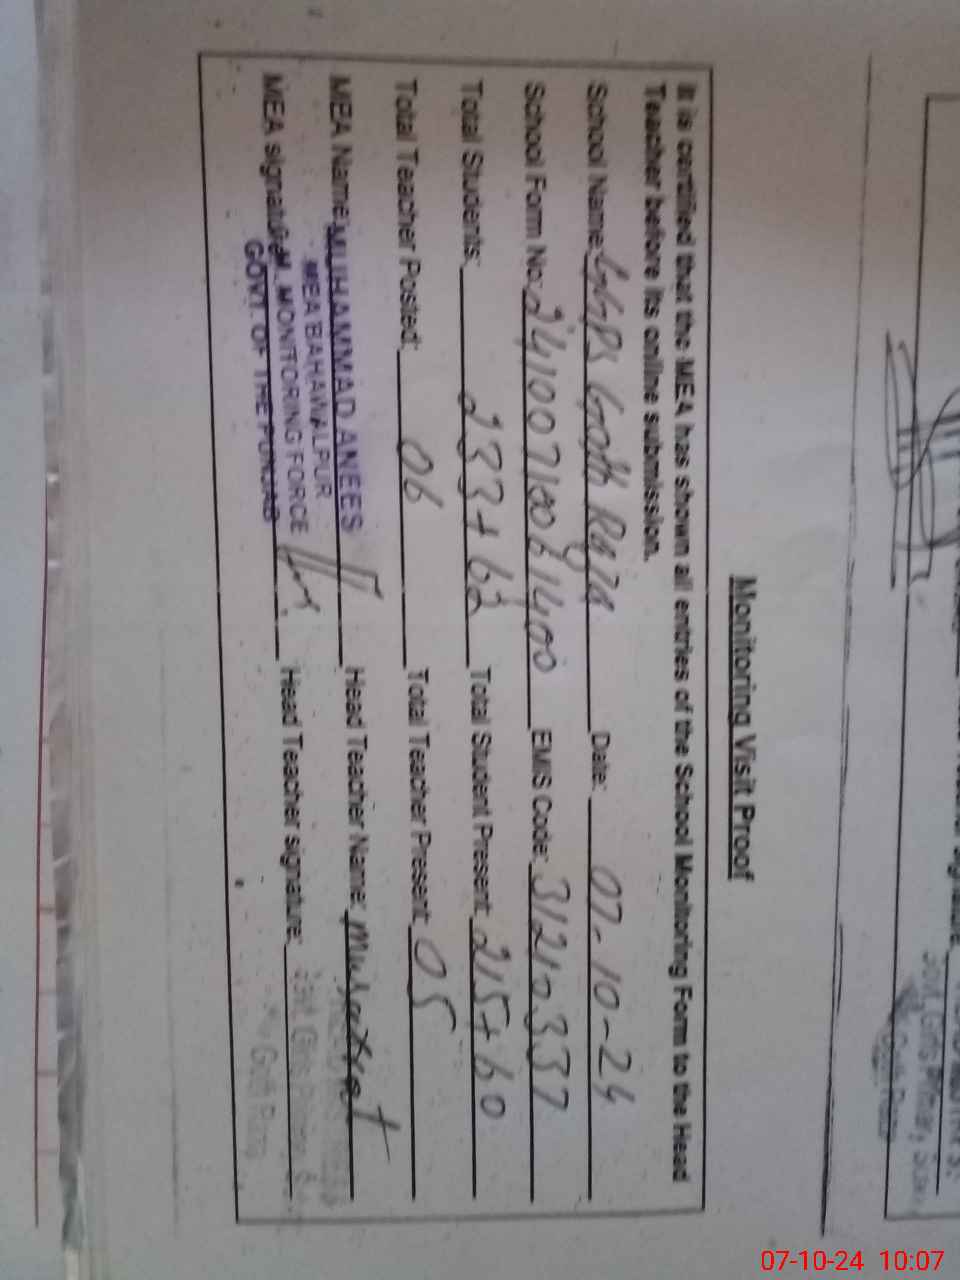 Monitoring Visit Proof
It is certified that the MEA has shown all entries of the School Monitoring Form to the Head
Teacher before its online submission.
School Name: GGPS Goth Raza Date: 07-10-24
School Form No: 24100710061400 EMIS Code: 31210337
Total Students: 233+62 Total Student Present: 215+60
Total Teacher Posted: 06 Total Teacher Present: 05
MEA Name: MUHAMMAD ANEES Head Teacher Name: Musarrat
MEA BAHAWALPUR
MEA signature: MONITORING FORCE Head Teacher signature: Govt. Girls Primary
GOVT. OF THE PUNJAB Goth Raza
signature
Govt. Girls Primary School
Goth Raza
07-10-24 10:07